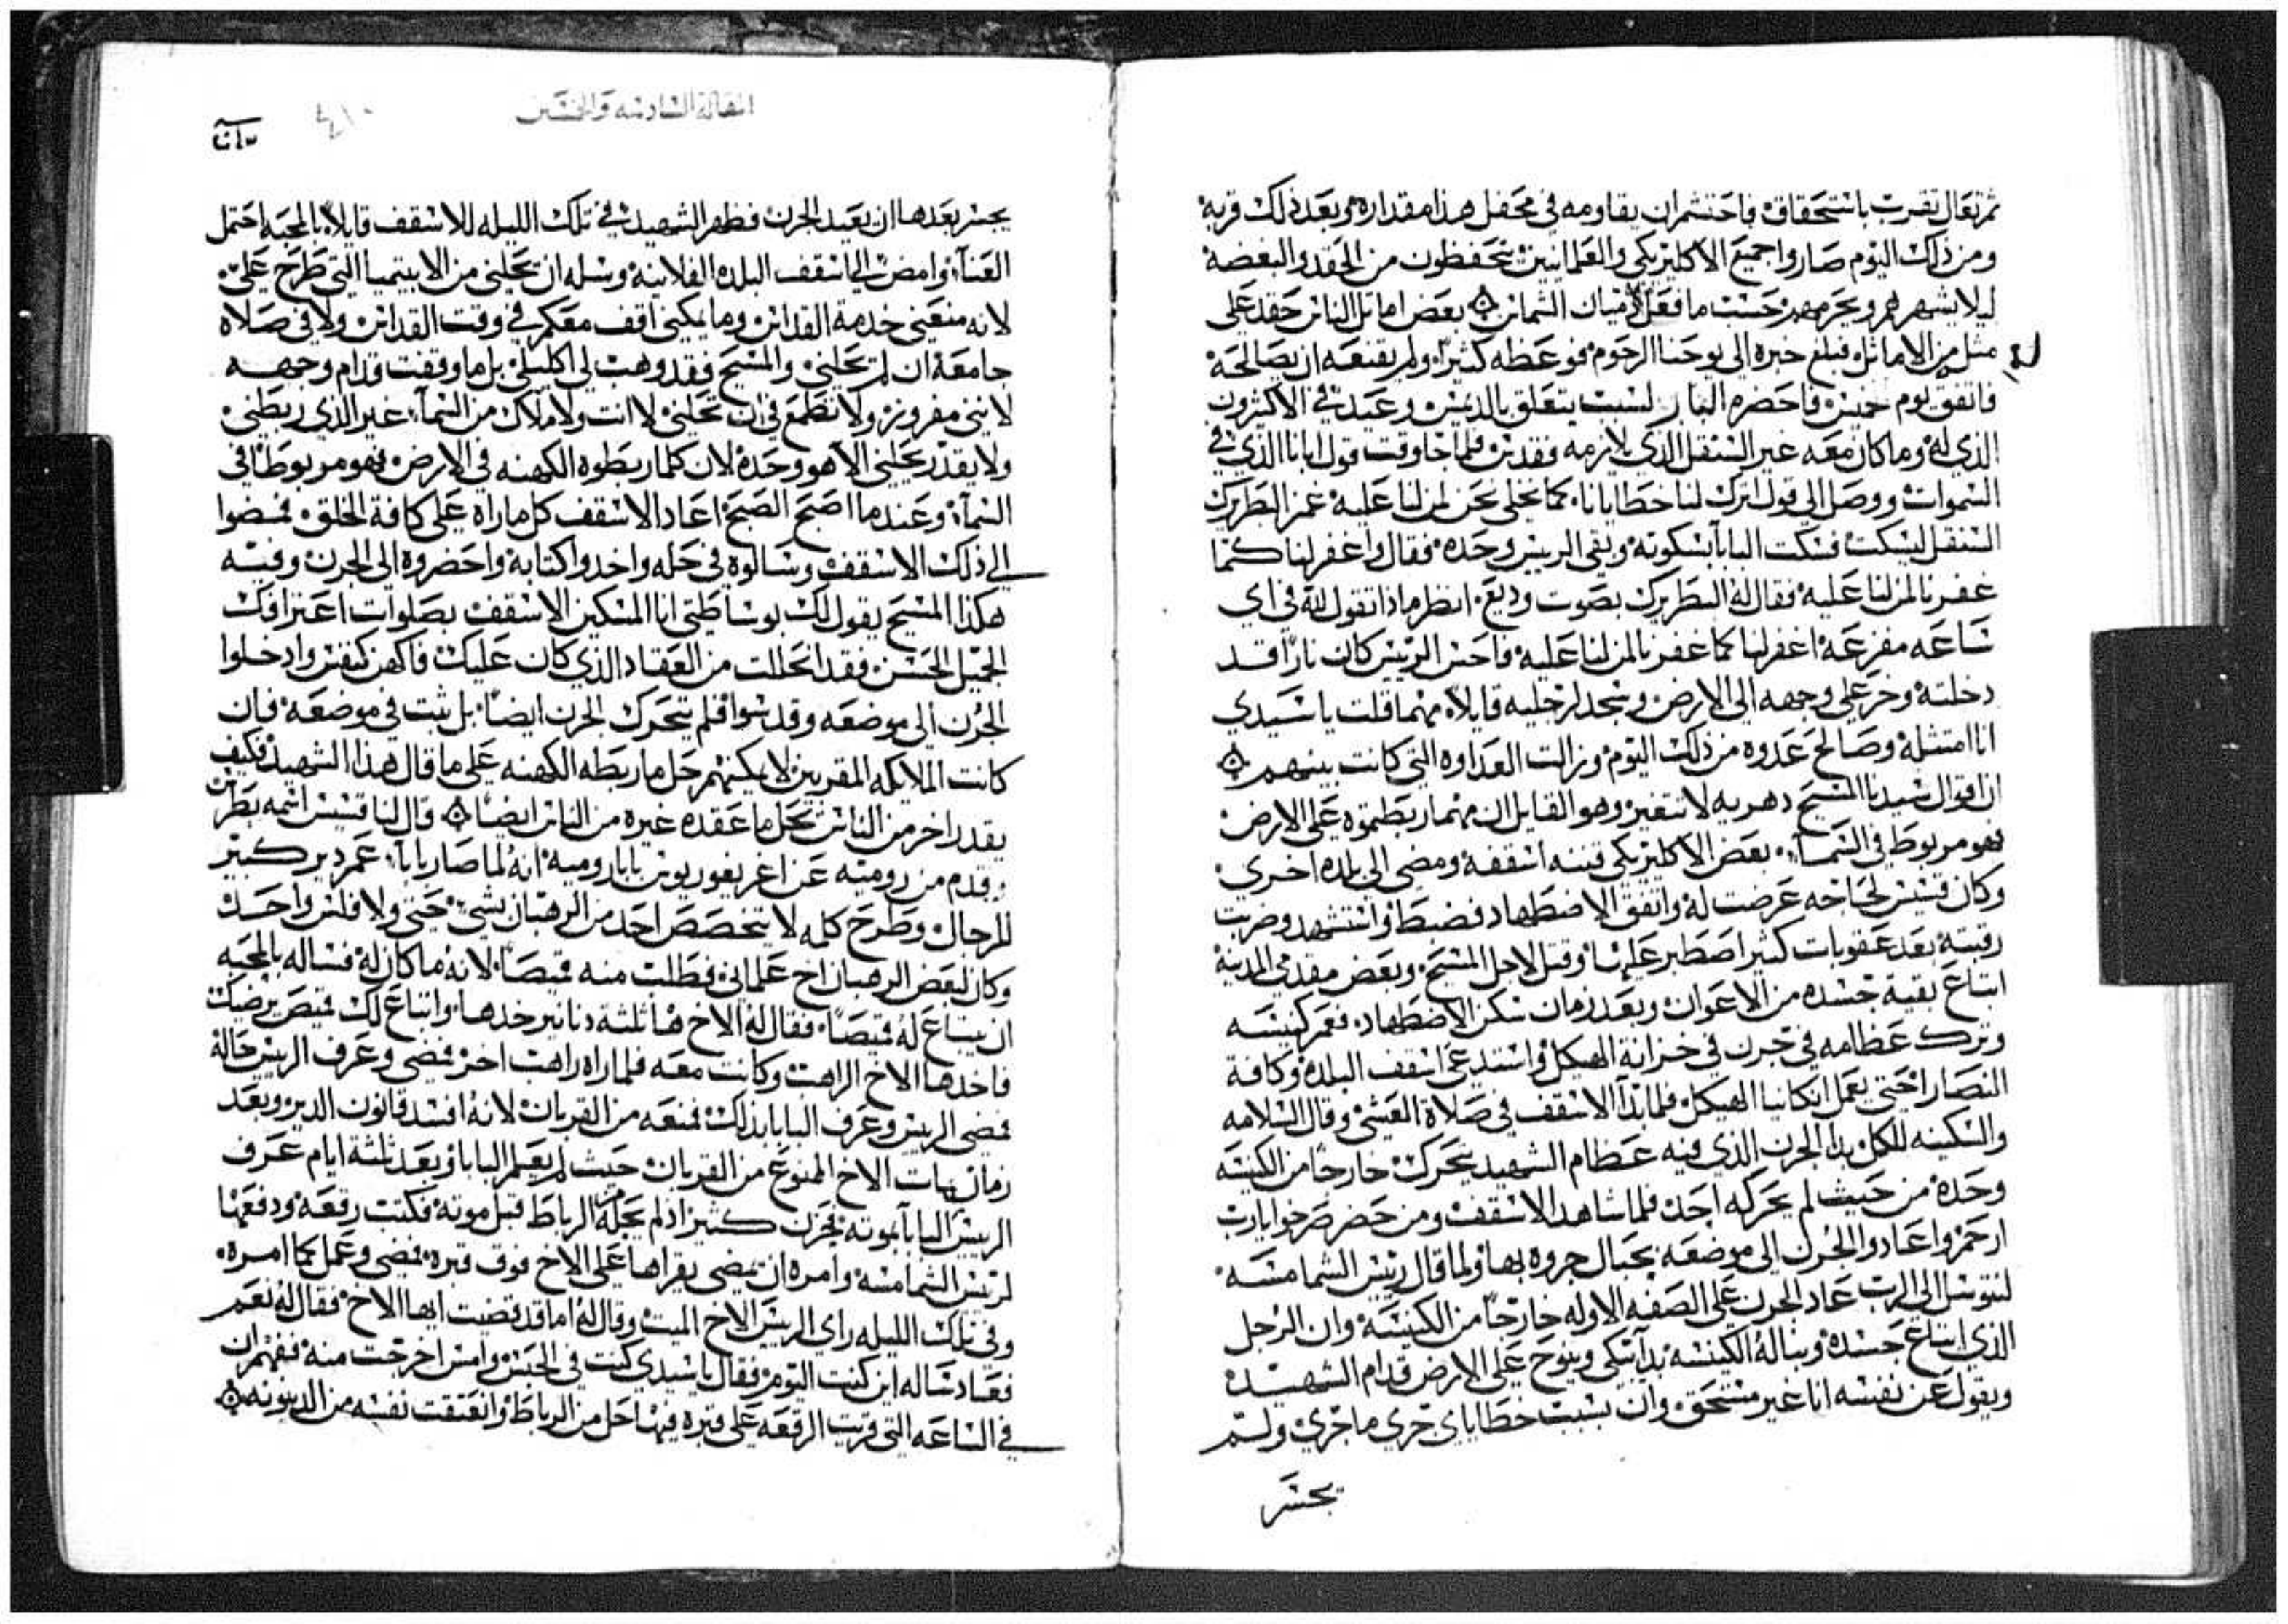 ثم تعال تقرب باستحقاق فاحتشم ان يقاومه في محفل هذا مقداره وبعد ذلك قربه
ومن ذلك اليوم صاروا جميع الاكليريكي والعلمانيين يتحفظون من الحقد والبغضه
ليلا يشهرهم ويحرمهم حسب ما فعل لاميان الشماس ۞ بعض اماثل الناس حقد على
مثل من الاماثل فبلغ خبره الى يوحنا الرحوم فوعظه كثيرا ولم يقنعه ان يصالحه
فاتفق يوم خميس فاحضره البابا ليس يتعلق بالديس وعيد في الاكثرون
الذي له وما كان معه غير السنقل الذي يلازمه فقدس فلما جا وقت قول ابانا الذي في
السموات ووصل الى قول اترك لنا خطايانا كما نخلي نحن لمن لنا عليه غمز البطريرك
السنقل ليسكت فسكت البابا بسكوته وبقي الرييس وحده فقال واغفر لنا كما
غفرنا لمن لنا عليه فقال له البطريرك بصوت وديع انظر ماذا تقول لله في اي
ساعه مفزعه اغفر لنا كما غفرنا لمن لنا عليه فاحس الرييس كان نارا قد
دخلته وخر على وجهه الى الارض وسجد لرجليه قايلا مهما قلت يا سيدي
انا امتثله وصالح عدوه من ذلك اليوم وزالت العداوه التي كانت بينهم ۞
ان اقوال سيدنا المسيح دهريه لا تتغير وهو القايل ان مهما ربطتموه على الارض
فهو مربوط في السما بعض الاكليريكي فتنه اسقفه ومضى الى بلده اخرى
وكان قسيس لحاجه عرضت له واتفق الاضطهاد فضبط واستشهد وضربت
رقبته بعد عقوبات كثيرا صطبر عليها وقتل لاجل المسيح وبعض مقدمي المدينه
ابتاع بقية جسده من الاعوان وبعد زمان سكن الاضطهاد فعمر كنيسه
وترك عظامه في جرن في خزانة الهيكل واستدعى اسقف البلده وكافة
النصارا حتى يعمل انكانيا الهيكل فلما بدآ الاسقف في صلاة العشي وقال السلامه
والسكينه للكل بدا الجرن الذي فيه عظام الشهيد يتحرك خارجا من الكنيسه
وحده من حيث لم يحركه احد فلما شاهد الاسقف ومن حضر صرخوا يارب
ارحم واعادوا الجرن الى موضعه بحبال جروه بها ولما قال رييس الشمامسه
لنتوسل الى الرب عاد الجرن على الصفه الاوله خارجا من الكنيسه وان الرجل
الذي ابتاع جسده وبنا له الكنيسه بدآ يبكي وينوح على الارض قدام الشهيد
ويقول عن نفسه انا غير مستحق وان بسبب خطاياي جرى ما جرى ولم
يجسر
المقالة السادسه والخمسين
٤١٠
يجسر بعدها ان يعيد الجرن فظهر الشهيد في تلك الليله للاسقف قايلا بالمحبه احتمل
العنآ وامض الى اسقف البلده الفلانيه وسله ان يحلني من الابيتيميا التي طرح علي
لانه منعني خدمة القداس وما يمكني اقف معكم في وقت القداس ولا في صلاه
جامعة ان لم يحلني والمسيح فقد وهب لي اكليلي بل ما وقفت قدام وجهه
لانني مفروز ولا تطمع في ان تحلني لا انت ولا ملاك من السمآ غير الذي ربطني
ولا يقدر يحلني الا هو وحده لان كلما ربطوه الكهنه في الارض فهو مربوطا في
السمآ وعندما اصبح الصبح اعاد الاسقف كل ما راه على كافة الخلق فمضوا
الى ذلك الاسقف وسالوه في حله واخدوا كتابه واحضروه الى الجرن وفيه
هكذا المسيح يقول لك بوساطتي انا المسكين الاسقف بصلوات اعترافك
الجميل الحسن فقد انحللت من العقاد الذي كان عليك فاكهن كنفس وادخلوا
الجرن الى موضعه وقدسوا فلم يتحرك الجرن ايضا بل ثبت في موضعه فان
كانت الملايكه المقربين لا يمكنهم حل ما ربطه الكهنه على ما قال هذا الشهيد فكيف
يقدر اخر من الناس يحل ما عقده غيره من الناس ايضا ۞ قال لنا قسيس اسمه بطرس
وقدم من روميه عن اغريغوريوس بابا روميه انه لما صار بابا عمر دير كبير
للرجال وطرح كلمه لا يتخصص احد من الرهبان بشي حتى ولا فلس واحد
وكان لبعض الرهبان اخ علماني فطلب منه قميصا لانه ما كان له فساله بالمحبه
ان يبتاع له قميصا فقال له الاخ ها ثلثة دنانير خدها وابتاع لك قميص يرضيك
فاخدها الاخ الراهب وكانت معه فلما راه راهب اخر فمضى وعرف الرييس حاله
فمضى الرييس وعرف البابا بذلك فمنعه من القربان لانه افسد قانون الدير وبعد
زمان مات الاخ الممنوع من القربان حيث لم يعلم البابا وبعد ثلثة ايام عرف
الرييس البابا بموته فحزن كثيرا اذ لم يحله من الرباط قبل موته فكتب رقعه ودفعها
لرييس الشمامسه وامره ان يمضي يقراها على الاخ فوق قبره فمضى وعمل كما امره
وفي تلك الليله راى الرييس الاخ الميت وقال له اما قد قضيت ايها الاخ فقال له نعم
فعاد ساله اين كنت اليوم فقال يا سيدي كنت في الحبس وامس اخرجت منه ففهم ان
في الساعه التي قريت الرقعه على قبره فيها حل من الرباط وانعتقت نفسه من الدينونه ۞